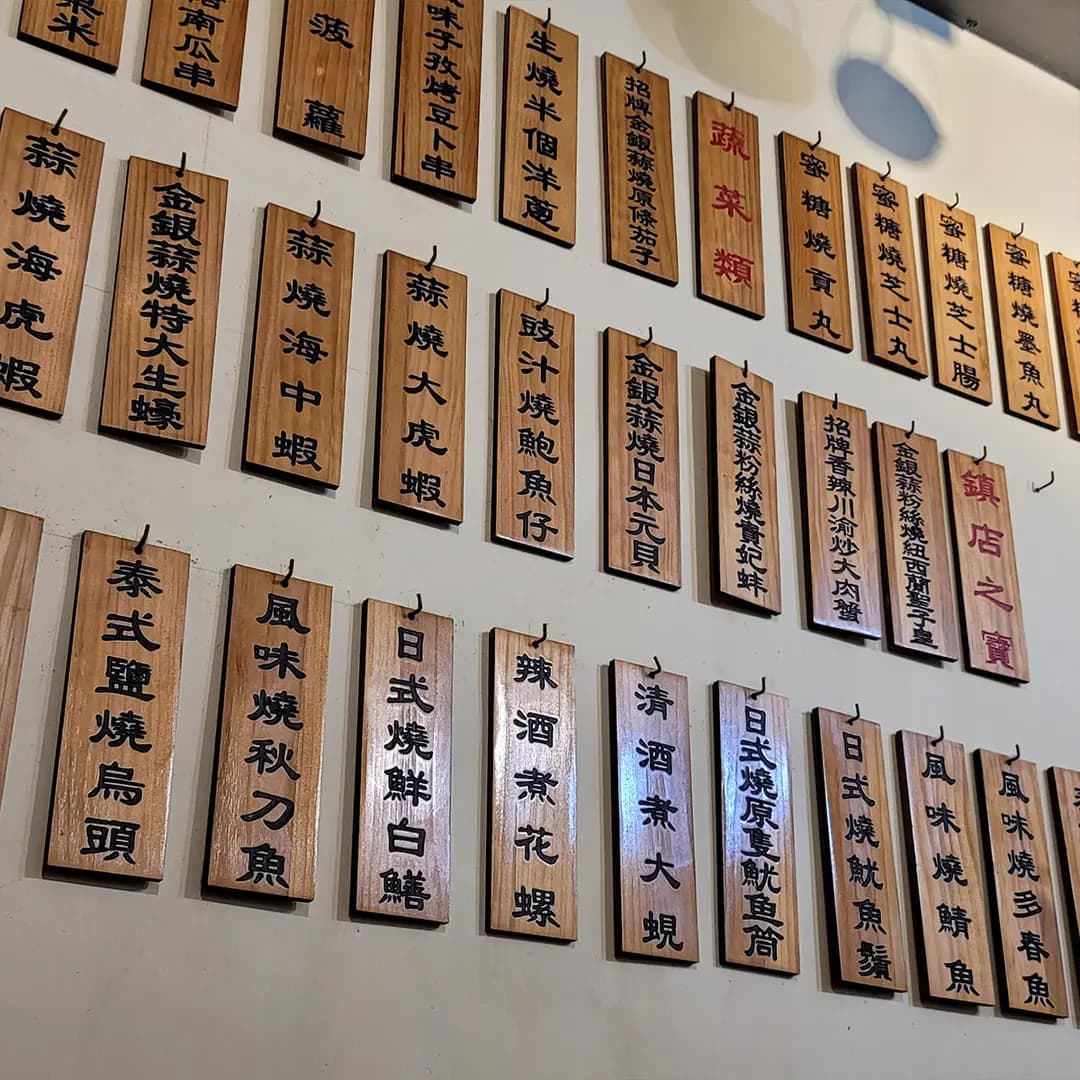 蜜糖燒墨魚丸
蜜糖燒芝士腸
蜜糖燒芝士丸
蜜糖燒貢丸
蔬菜類
招牌金銀蒜燒原條茄子
生燒半個洋蔥
味子孜烤豆卜串
菠蘿
南瓜串
米
鎮店之寶
金銀蒜粉絲燒紐西蘭聖子皇
招牌香辣川渝炒大肉蟹
金銀蒜粉絲燒貴妃蚌
金銀蒜燒日本元貝
豉汁燒鮑魚仔
蒜燒大虎蝦
蒜燒海中蝦
金銀蒜燒特大生蠔
蒜燒海虎蝦
風味燒多春魚
風味燒鯖魚
日式燒魷魚鬚
日式燒原隻魷鱼筒
清酒煮大蜆
辣酒煮花螺
日式燒鮮白鱔
風味燒秋刀魚
泰式鹽燒烏頭